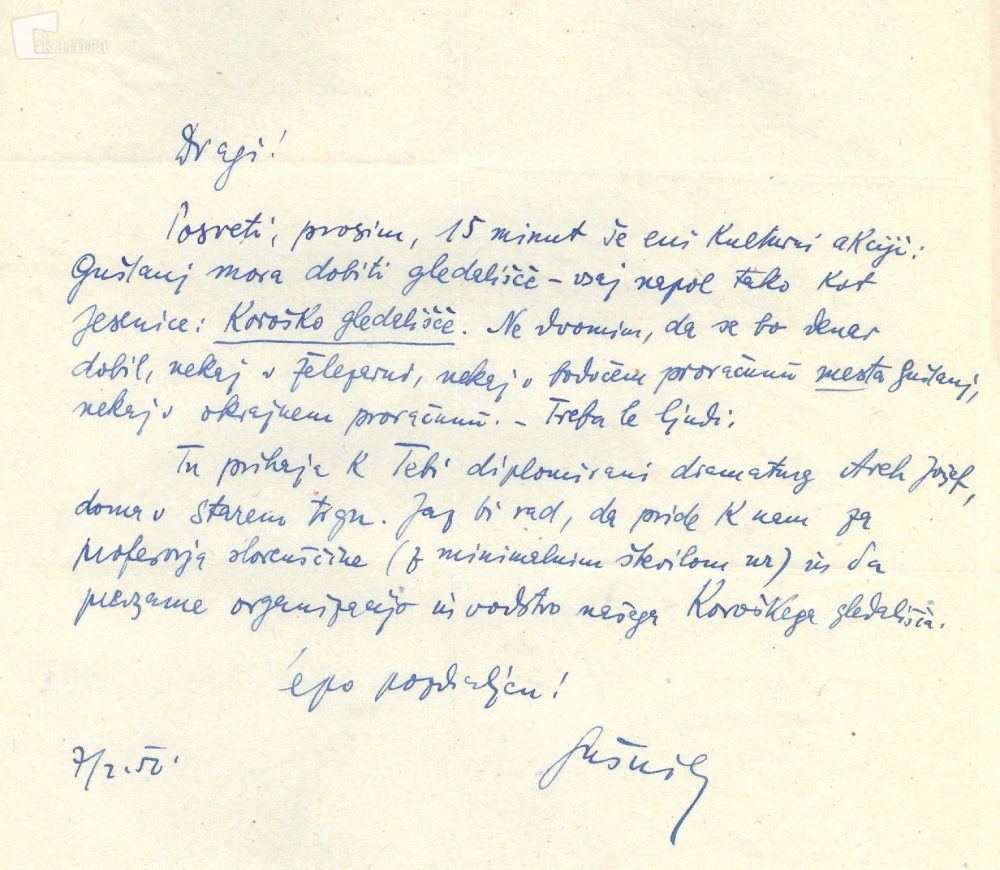 kamra
Dragi!
Posveti, prosim, 15 minut še eni kulturni akciji:
Guštanj mora dobiti gledališče – vsaj napol tako kot
Jesenice: Koroško gledališče. Ne dvomim, da se bo denar
dobil, nekaj v železarni, nekaj v bodočem proračunu mesta Guštanj,
nekaj v okrajnem proračunu. – Treba le ljudi.
Tu prihaja k Tebi diplomirani dramaturg Areh Jožef,
doma v Starem trgu. Jaz bi rad, da pride k nam za
profesorja slovenščine (z minimalnim številom ur) in da
prevzame organizacijo in vodstvo našega Koroškega gledališča.
Lepo pozdravljen!
7/2.52.
Sušnik